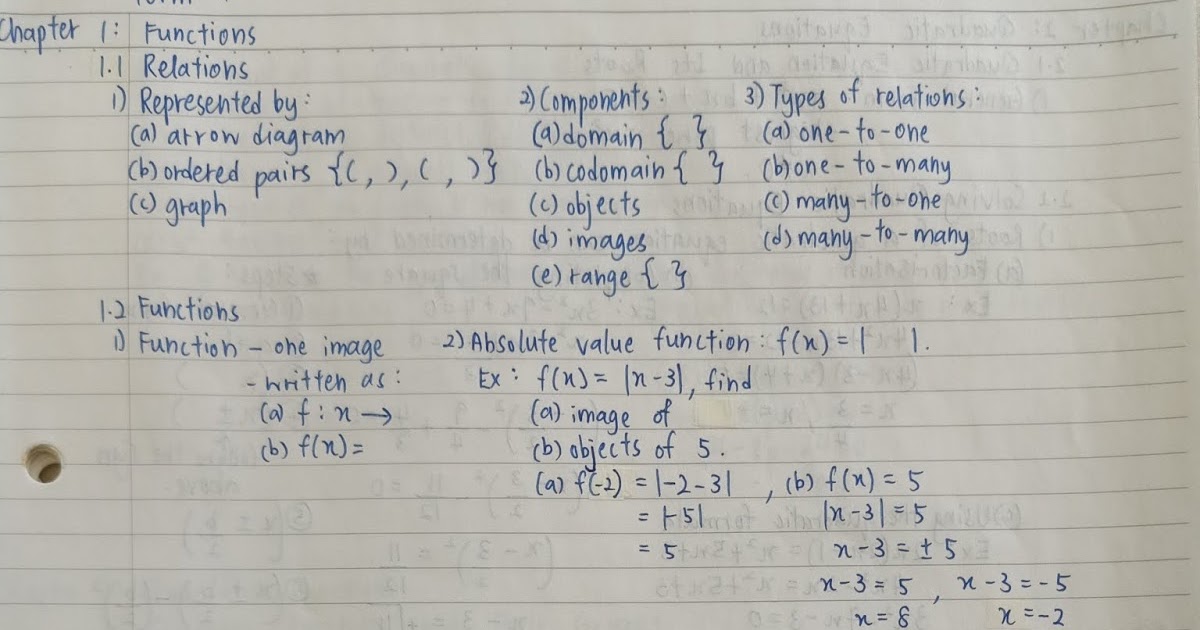 Chapter 1: Functions
1.1 Relations
1) Represented by:
(a) arrow diagram
(b) ordered pairs {( , ), ( , )}
(c) graph
2) Components:
(a) domain { }
(b) codomain { }
(c) objects
(d) images
(e) range { }
3) Types of relations:
(a) one-to-one
(b) one-to-many
(c) many-to-one
(d) many-to-many
1.2 Functions
1) Function - one image
- written as:
(a) f : x →
(b) f(x) =
2) Absolute value function : f(x) = | |.
Ex : f(x) = |x-3|, find
(a) image of
(b) objects of 5.
(a) f(-2) = |-2-3|
= |-5|
= 5
, (b) f(x) = 5
|x-3| = 5
x-3 = ± 5
x-3 = 5 , x-3 = -5
x = 8 x = -2